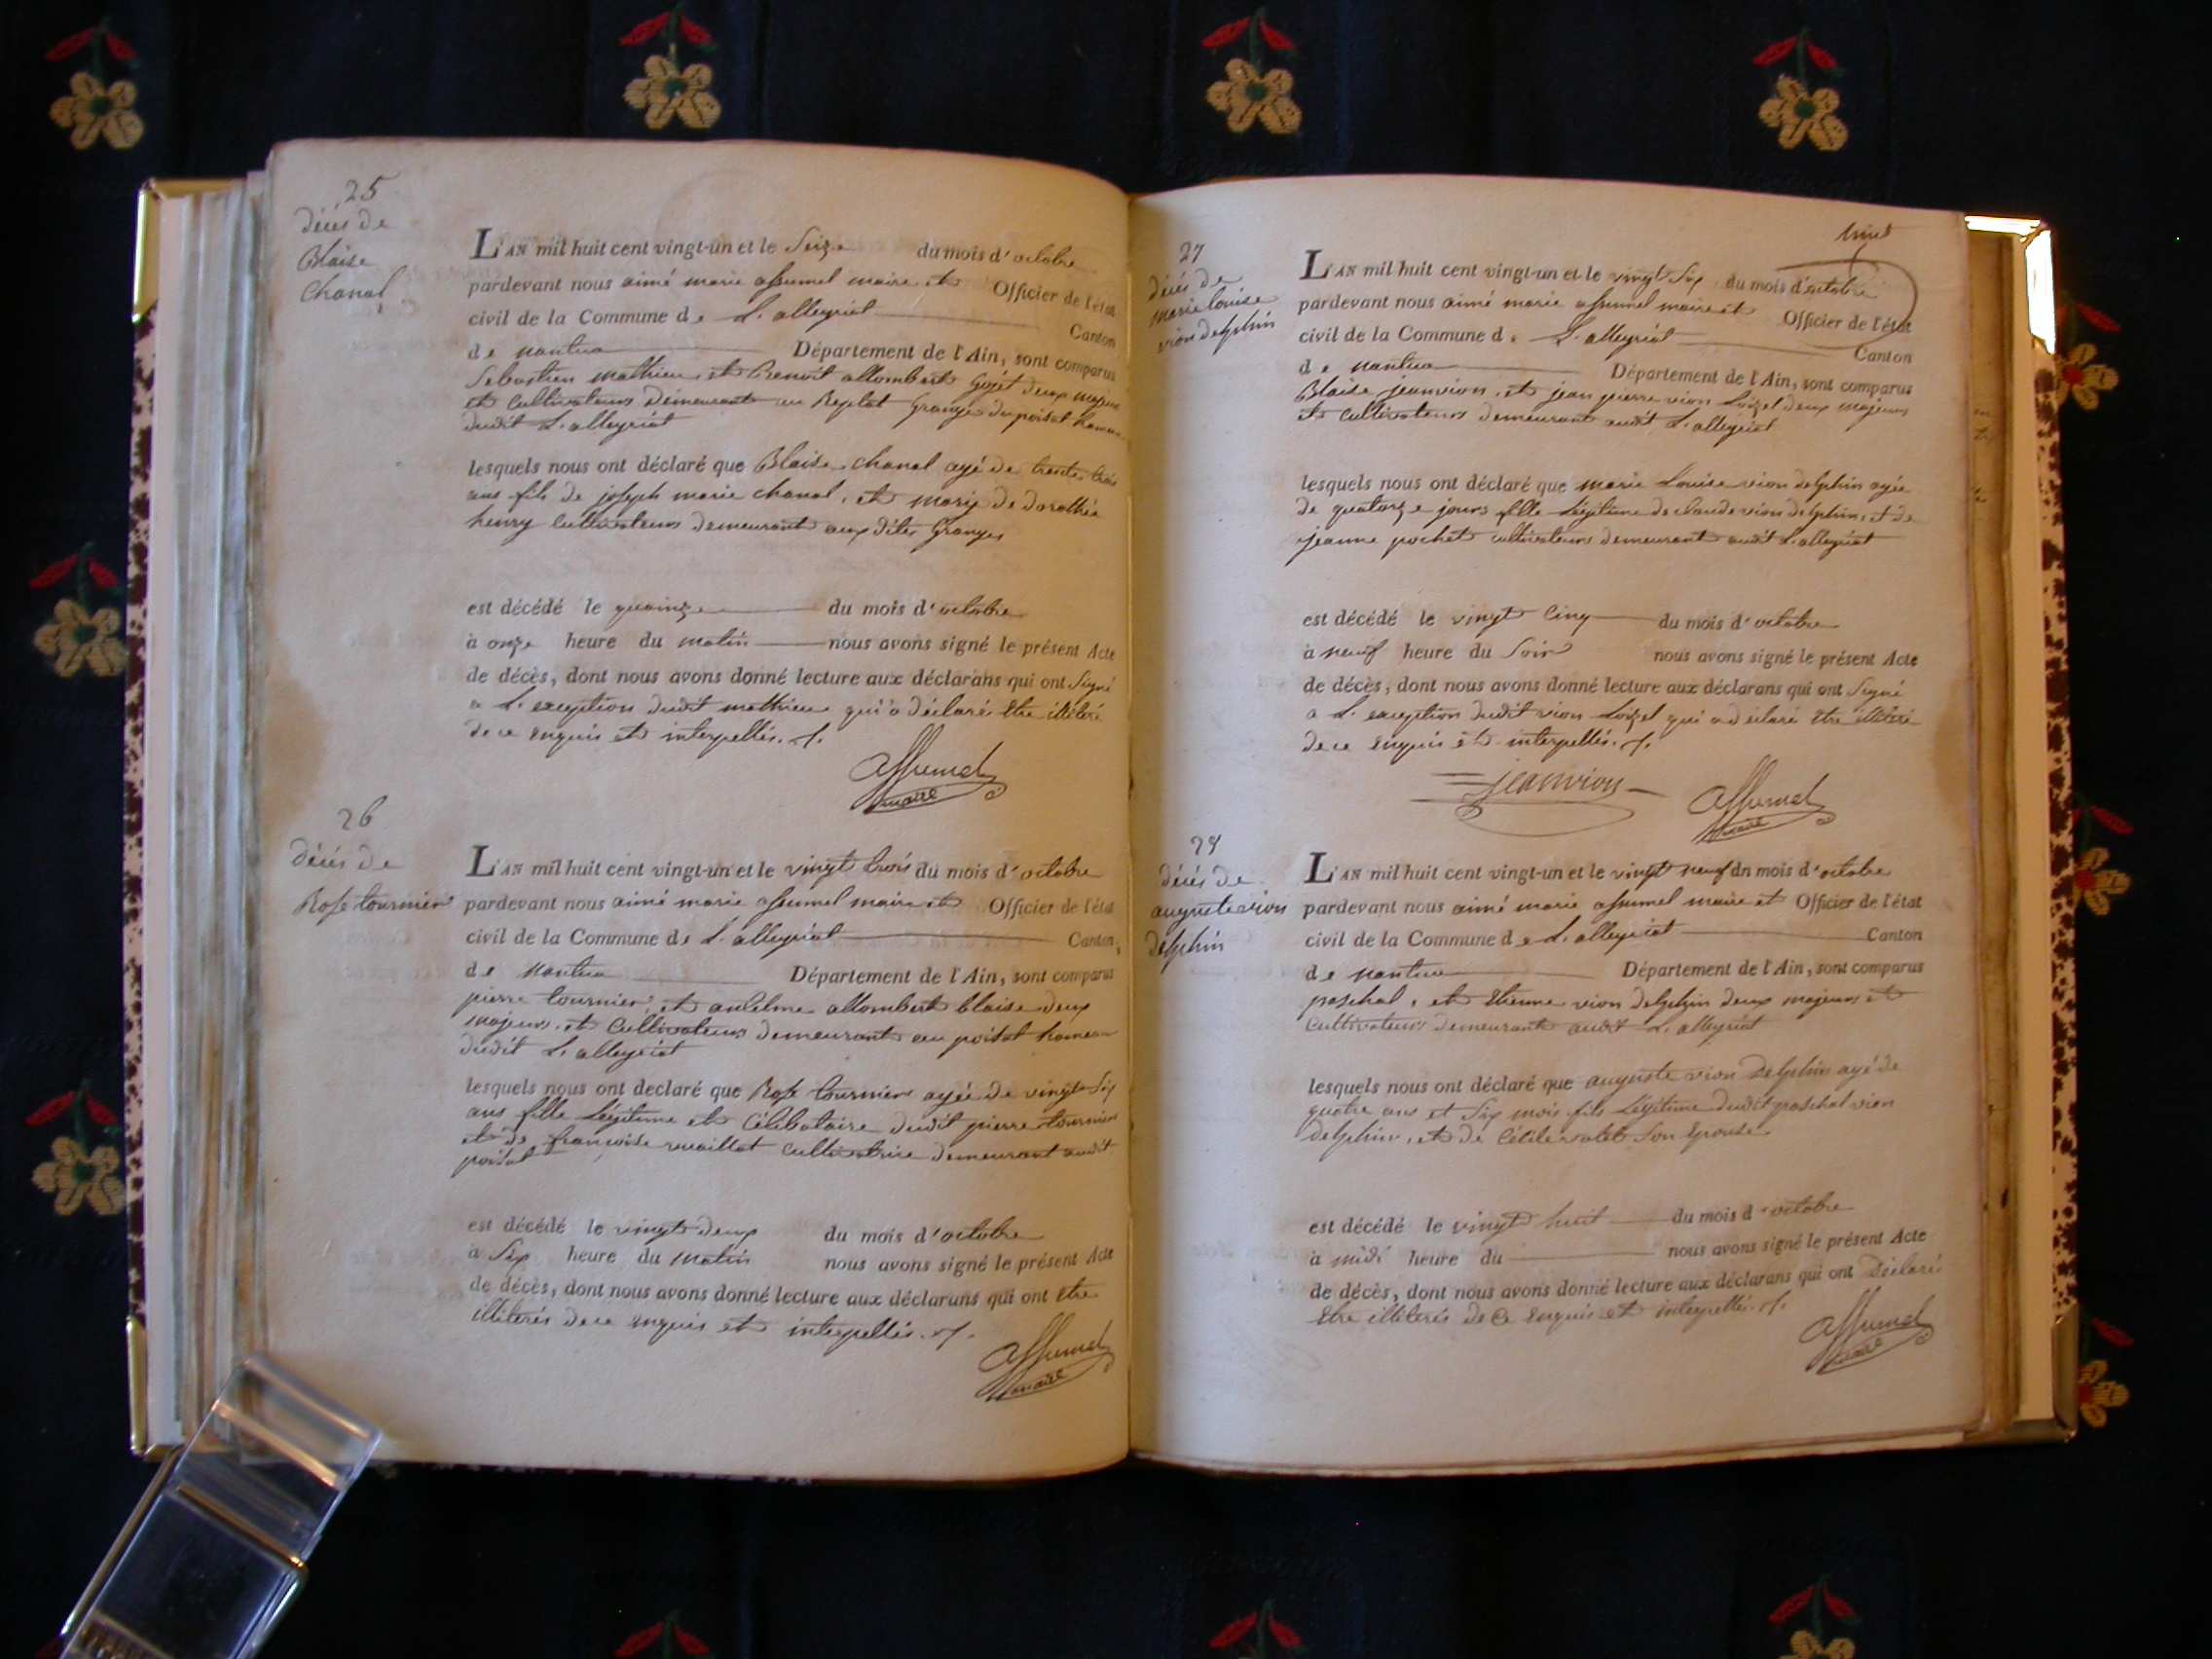 25
décés de
Blaise
Chanal
L'AN mil huit cent vingt-un et le Seize du mois d'octobre
pardevant nous aimé marie assumel maire et Officier de l'état
civil de la Commune de L'alleyriat Canton
de nantua Département de l'Ain, sont comparus
Sebastien mathieu et Benoit allombert Gojet deux majeurs
et Cultivateurs demeurant au Replat Granges du poisat hameau
dudit L'alleyriat
lesquels nous ont déclaré que Blaise Chanal agé de trente trois
ans fils de joseph marie chanal, et mary de dorothée
henry Cultivateurs demeurant aux dites Granges
est décédé le quainze du mois d'octobre
à onze heure du matin nous avons signé le présent Acte
de décès, dont nous avons donné lecture aux déclarans qui ont Signé
a L'exception dudit mathieu qui a déclaré être illitéré
de ce enquis et interpellés.
assumel
maire
26
décés de
Rose tournier
L'AN mil huit cent vingt-un et le vingt trois du mois d'octobre
pardevant nous aimé marie assumel maire et Officier de l'état
civil de la Commune de L'alleyriat Canton
de nantua Département de l'Ain, sont comparus
pierre tournier, et anselme allombert blaise deux
majeurs et Cultivateurs demeurant au poisat hameau
dudit L'alleyriat
lesquels nous ont declaré que Rose tournier agée de vingt Six
ans fille Légitime et Célibataire dudit pierre tournier
et de françoise maillat Cultivatrice demeurant audit
poisat
est décédé le vingt deux du mois d'octobre
à Six heure du matin nous avons signé le présent Acte
de décès, dont nous avons donné lecture aux déclarans qui ont être
illiterés de ce enquis et interpellés.
assumel
maire
27
décés de
marie louise
vion delphin
L'AN mil huit cent vingt-un et le vingt Six du mois d'octobre
pardevant nous aimé marie assumel maire et Officier de l'état
civil de la Commune de L'alleyriat Canton
de nantua Département de l'Ain, sont comparus
Blaise jeanvion, et jean pierre vion Loizel deux majeurs
et Cultivateurs demeurant audit L'alleyriat
lesquels nous ont déclaré que marie Louise vion delphin agée
de quatorze jours fille Légitime de claude vion delphin, et de
jeanne pochet cultivateurs demeurant audit L'alleyriat
est décédé le vingt Cinq du mois d'octobre
à neuf heure du Soir nous avons signé le présent Acte
de décès, dont nous avons donné lecture aux déclarans qui ont Signé
a L'exception dudit vion Loizel qui a déclaré être illitéré
de ce enquis et interpellés.
jeanvion
assumel
maire
décés de
auguste vion
delphin
L'AN mil huit cent vingt-un et le vingt neuf du mois d'octobre
pardevant nous aimé marie assumel maire et Officier de l'état
civil de la Commune de L'alleyriat Canton
de nantua Département de l'Ain, sont comparus
paschal, et Etienne vion delphin deux majeurs et
Cultivateurs demeurant audit L'alleyriat
lesquels nous ont déclaré que auguste vion delphin agé de
quatre ans et Six mois fils Légitime dudit paschal vion
delphin, et de Cécile valet Son Epouse
est décédé le vingt huit du mois d'octobre
à midi heure du nous avons signé le présent Acte
de décès, dont nous avons donné lecture aux déclarans qui ont Déclaré
être illiterés de ce enquis et interpellés.
assumel
maire